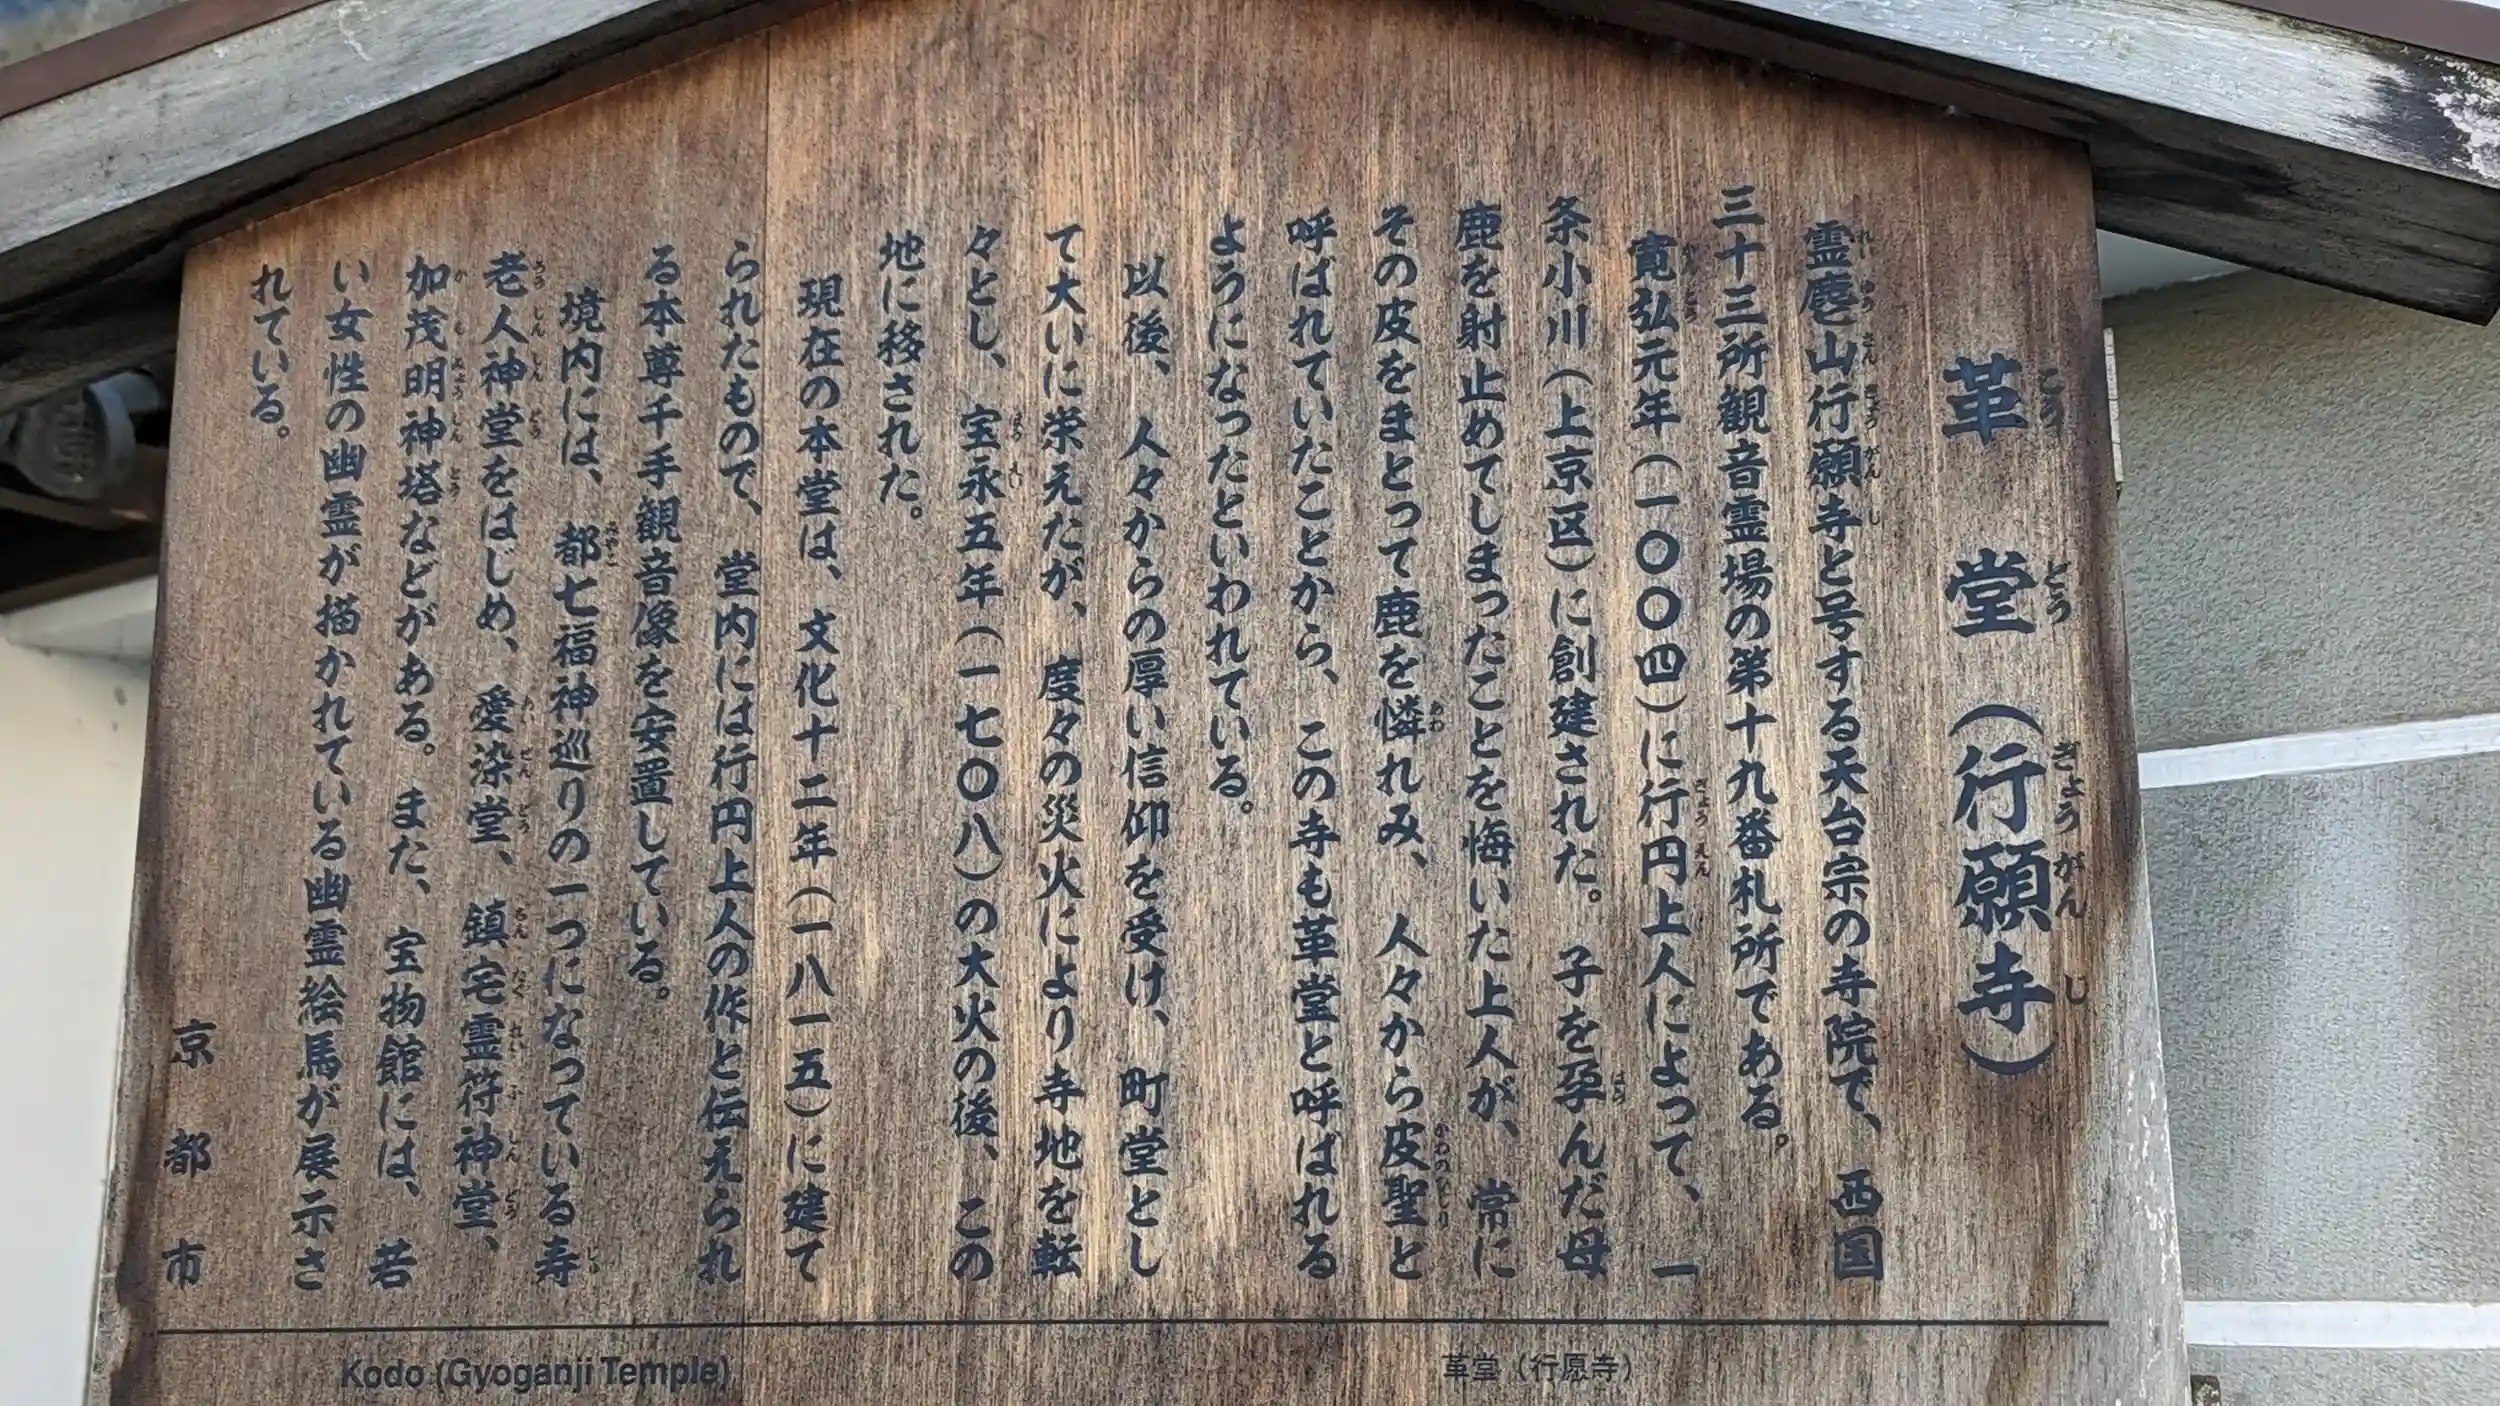 革堂（行願寺）
霊麀山行願寺と号する天台宗の寺院で、西国
三十三所観音霊場の第十九番札所である。
寛弘元年（一〇〇四）に行円上人によって、一
条小川（上京区）に創建された。子を孕んだ母
鹿を射止めてしまったことを悔いた上人が、常に
その皮をまとって鹿を憐れみ、人々から皮聖と
呼ばれていたことから、この寺も革堂と呼ばれる
ようになったといわれている。
以後、人々からの厚い信仰を受け、町堂とし
て大いに栄えたが、度々の災火により寺地を転
々とし、宝永五年（一七〇八）の大火の後、この
地に移された。
現在の本堂は、文化十二年（一八一五）に建て
られたもので、堂内には行円上人の作と伝えられ
る本尊千手観音像を安置している。
境内には、都七福神巡りの一つになっている寿
老人神堂をはじめ、愛染堂、鎮宅霊符神堂、
加茂明神塔などがある。また、宝物館には、若
い女性の幽霊が描かれている幽霊絵馬が展示さ
れている。
京都市
Kodo (Gyoganji Temple)
革堂（行愿寺）